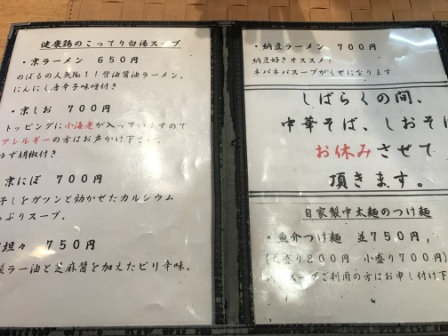 健康鶏のこってり白湯スープ
・京ラーメン 650円
のぼるの人気No11背油醤油ラーメン。
にんにく唐辛子味噌付き
・京しお 700円
トッピングに小海老が入っていますので
アレルギーの方はお声かけ下さい。
ず胡椒付き
京にぼ 700円
干しをガツンと効かせたカルシウム
っぷりスープ。
担々 750円
ラー油と芝麻醤を加えたピリ辛味。
・納豆ラーメン 700円
納豆好きオススメ
ネバネバスープがくせになります
しばらくの間、
中華そば、しおそ
お休みさせて
頂きます。
自家製中太麺のつけ麺
・魚介つけ麺 並750円,
盛り200円 小盛り700円)
スープご利用の方はお申し付け下